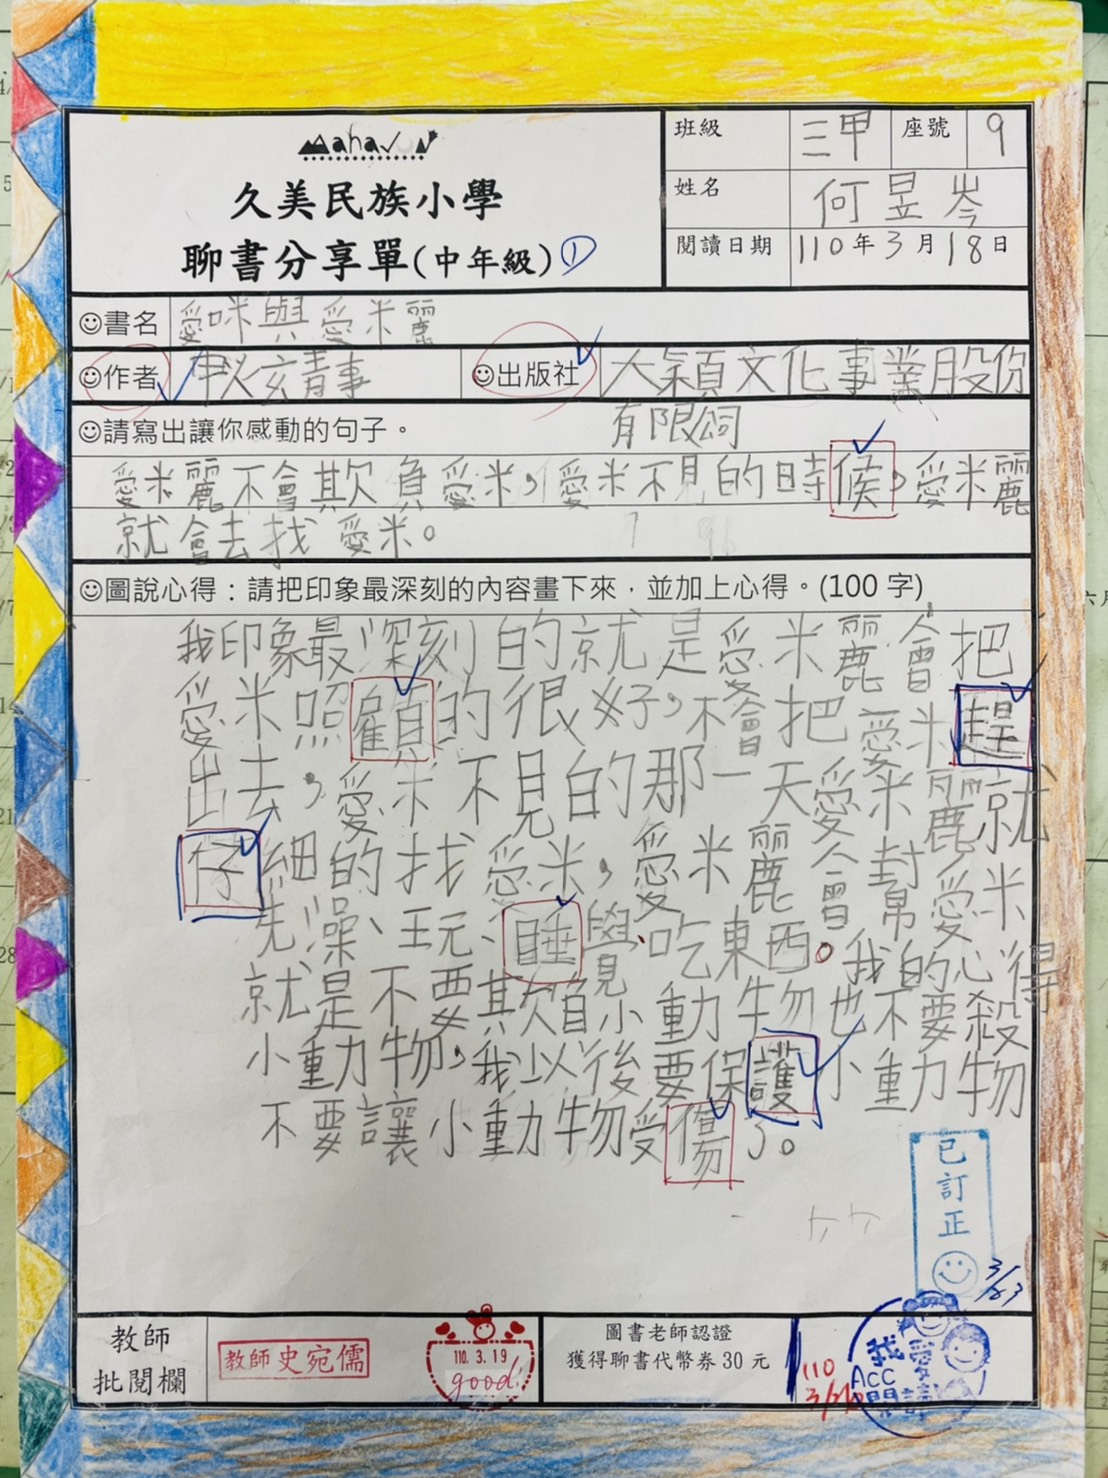 Mahavun
久美民族小學
聊書分享單(中年級)①
班級 三甲 座號 9
姓名 何昱岑
閱讀日期 110年3月18日
☺書名 愛咪與愛米麗
☺作者 ☺出版社 大穎文化事業股份
有限公司
☺請寫出讓你感動的句子。
愛米麗不會欺負愛米,愛米不見的時候,愛米麗
就會去找愛米。
☺圖說心得:請把印象最深刻的內容畫下來,並加上心得。(100字)
我印象最深刻的就是愛米麗會把
愛米照顧的很好,不會把愛米趕
出去,愛米不見的那一天愛米麗就
仔細的找愛米,愛米麗會幫愛米
洗澡、玩、睡覺、吃東西。我的心得
就是不要欺負小動物也不要殺
小動物,我以後要保護小動物
不要讓小動物受傷了。
已訂正
3/23
教師
批閱欄
教師史宛儒
110.3.19
good
圖書老師認證
獲得聊書代幣券30元
110
我愛
Acc
閱讀